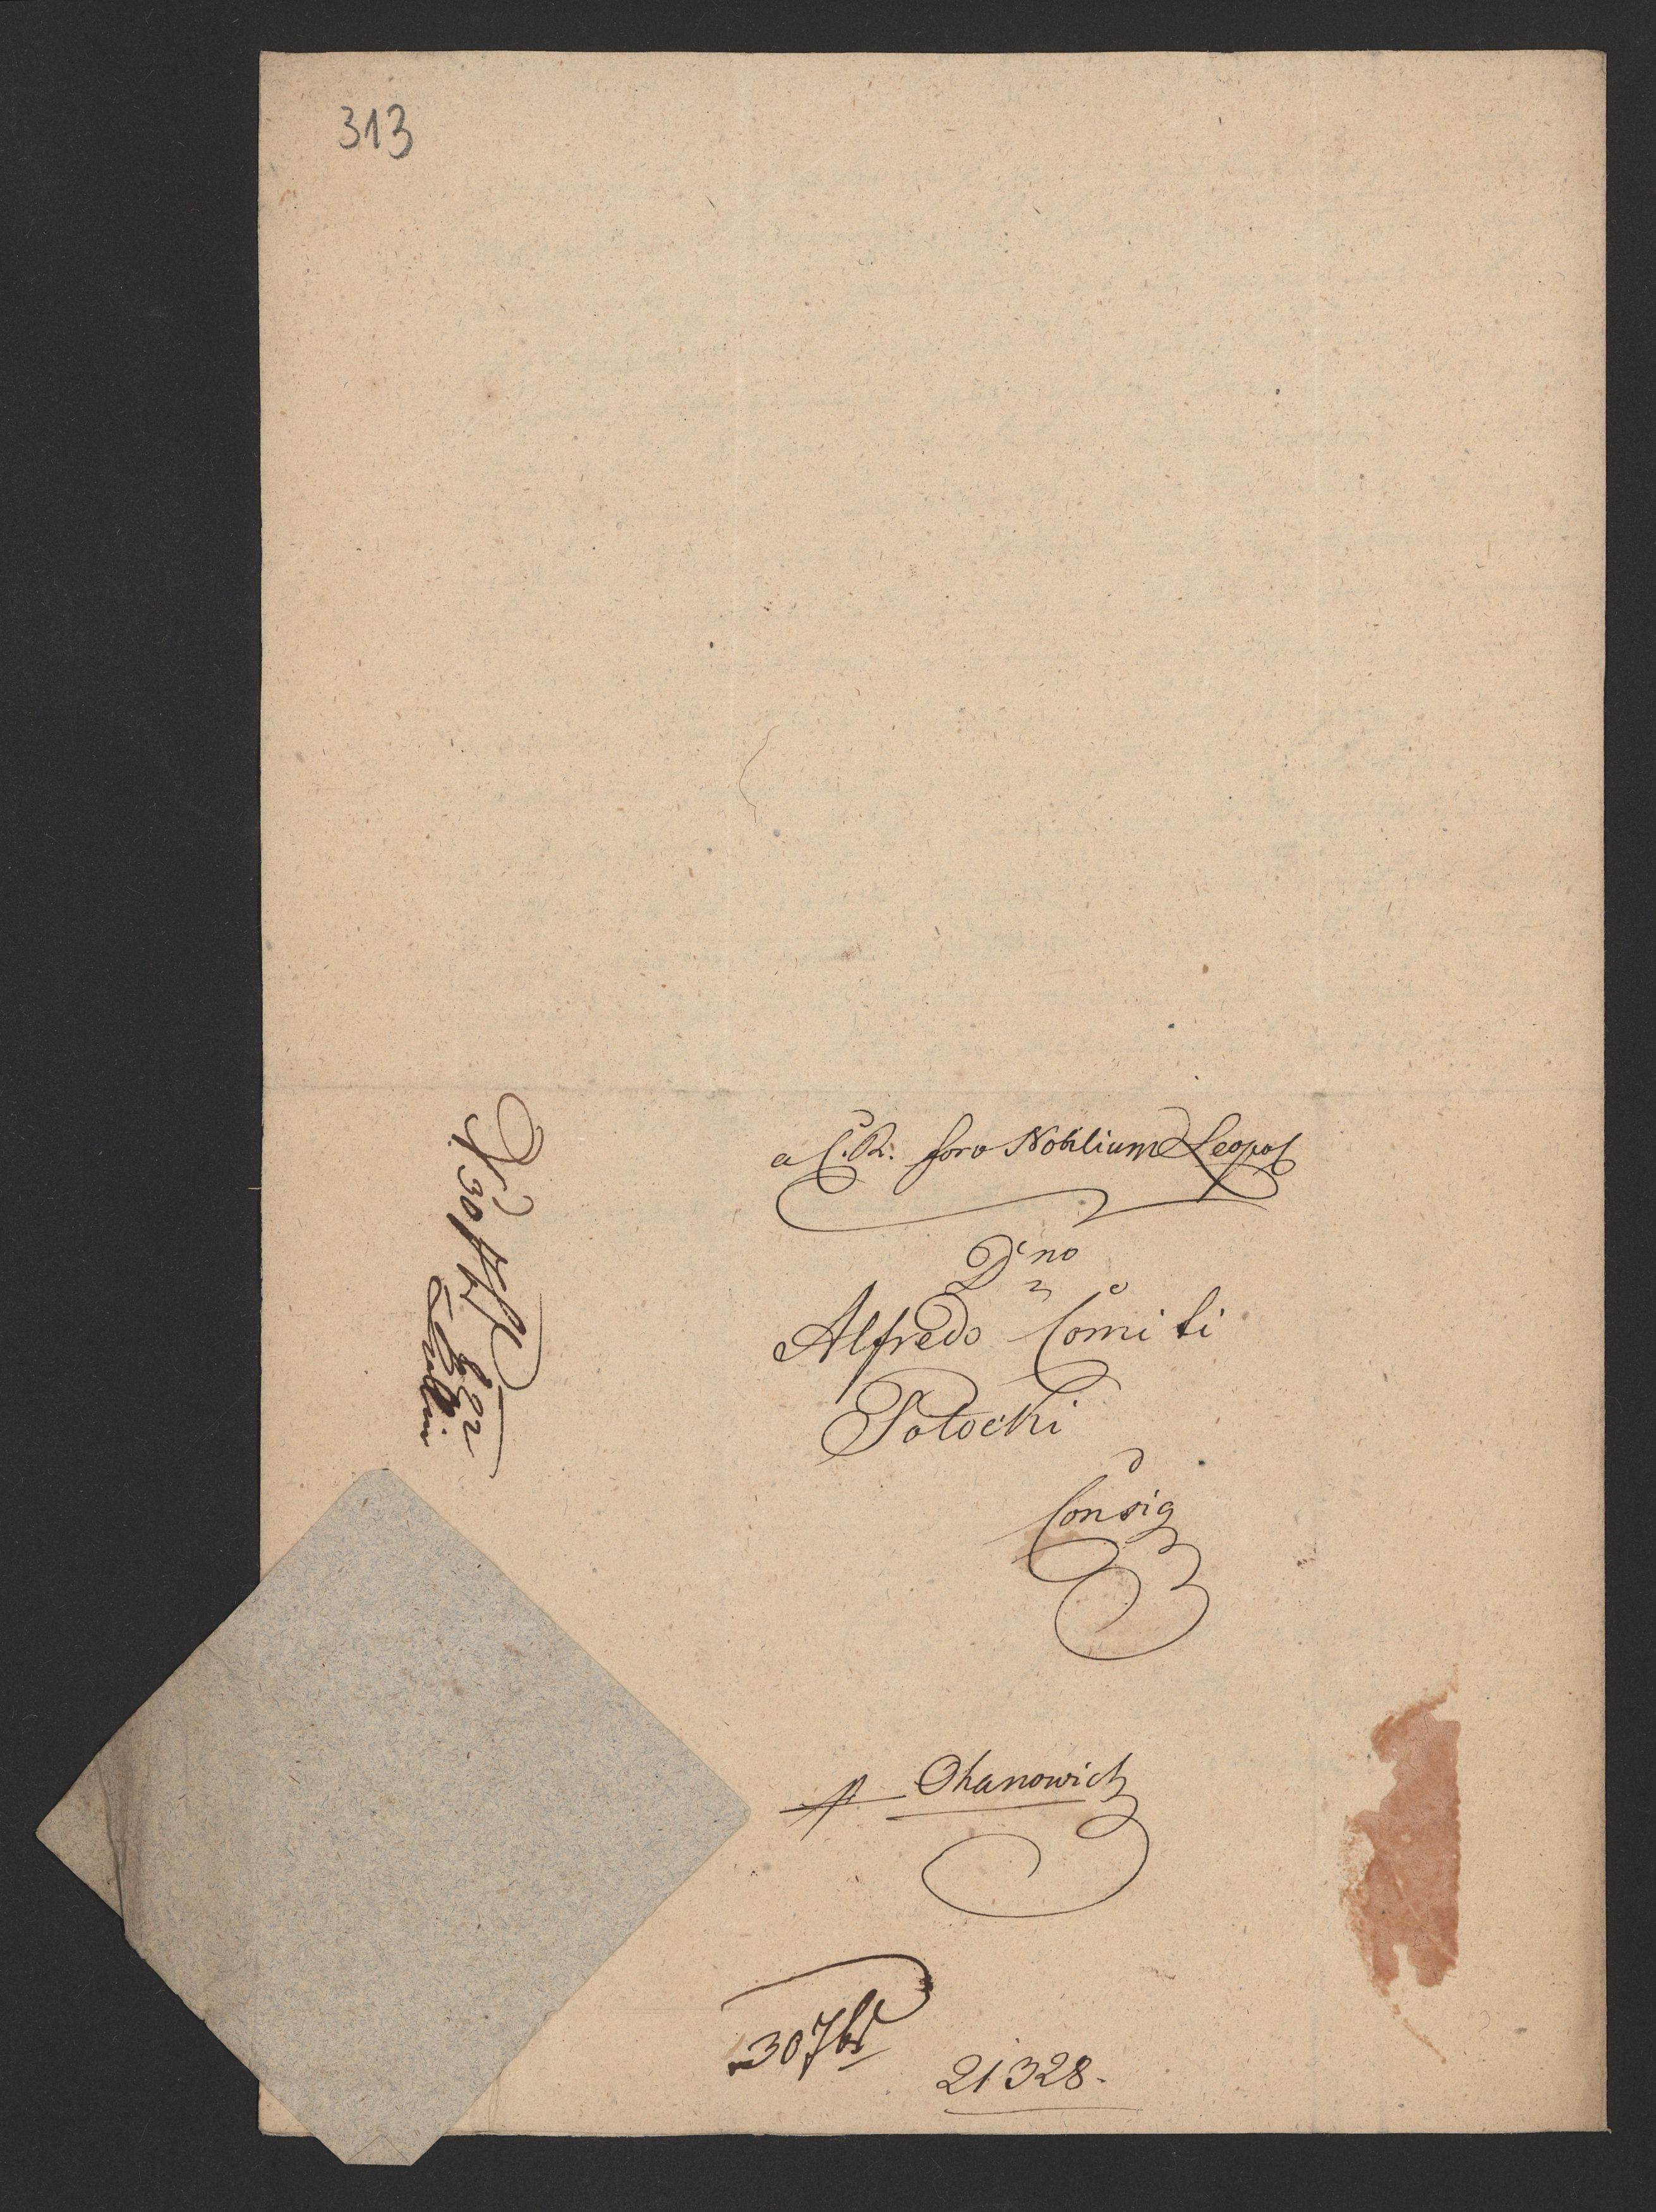 313
a C. R. foro Nobilium Leopol
Dno
Alfredo Comiti
Potocki
Consig
Ohanowicz
307bs
21328.